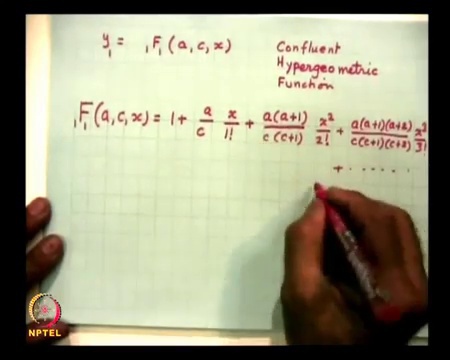 y₁ = ₁F₁(a, c, x)
Confluent
Hypergeometric
Function
₁F₁(a, c, x) = 1 + a/c x/1! + a(a+1)/c(c+1) x²/2! + a(a+1)(a+2)/c(c+1)(c+2) x³/3!
+ .......
NPTEL